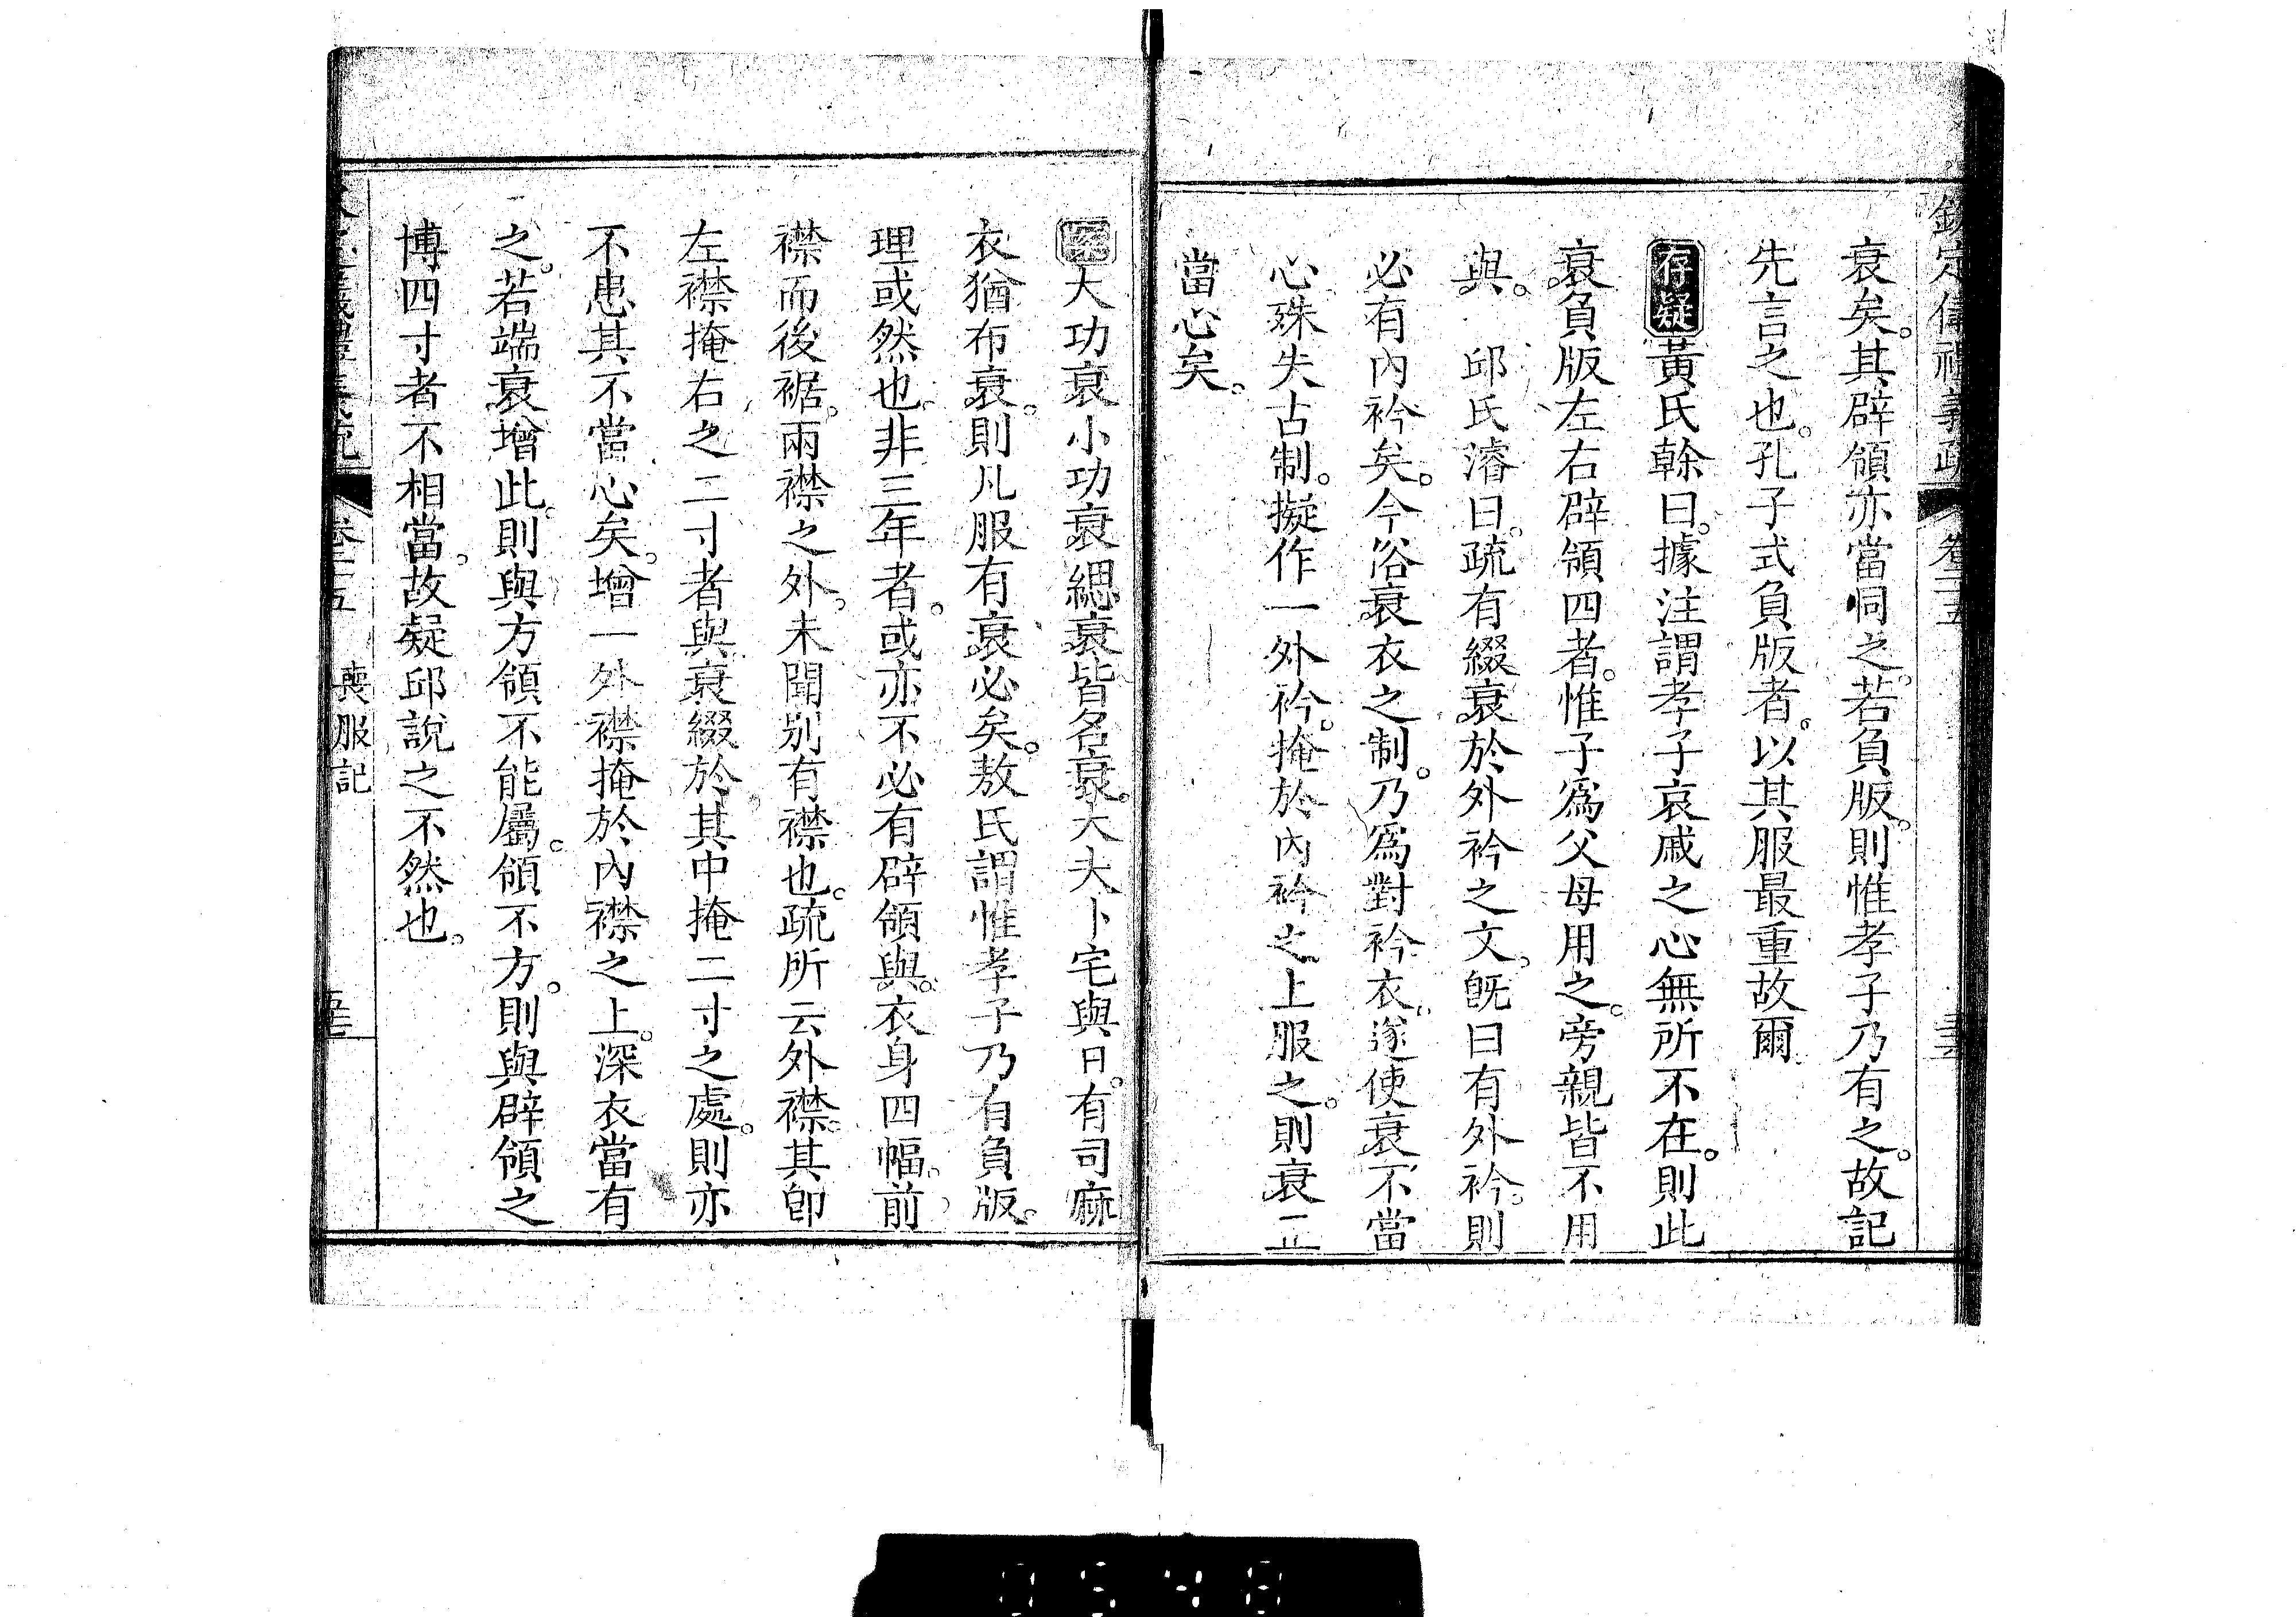 欽定儀禮義疏 卷二十五
衰矣。其辟領亦當同之。若負版。則惟孝子乃有之。故記
先言之也。孔子式負版者。以其服最重故爾
存疑黃氏榦曰。據注謂孝子哀戚之心無所不在。則此
衰負版左右辟領四者。惟子爲父母用之。旁親皆不用
與。 邱氏濬曰。疏有綴衰於外衿之文。旣曰有外衿。則
必有內衿矣。今俗衰衣之制。乃爲對衿衣。遂使衰不當
心殊失古制。擬作一外衿。掩於內衿之上服之。則衰正
當心矣。
案大功衰小功衰緦衰皆名衰。大夫卜宅與日。有司麻
衣猶布衰。則凡服有衰必矣。敖氏謂惟孝子乃有負版。
理或然也。非三年者。或亦不必有辟領與。衣身四幅。前
襟而後裾。兩襟之外。未聞別有襟也。疏所云外襟。其卽
左襟掩右之二寸者與衰綴於其中掩二寸之處。則亦
不患其不當心矣。增一外襟掩於內襟之上。深衣當有
之。若端衰增此。則與方領不能屬。領不方。則與辟領之
博四寸者不相當。故疑邱說之不然也。
喪服記